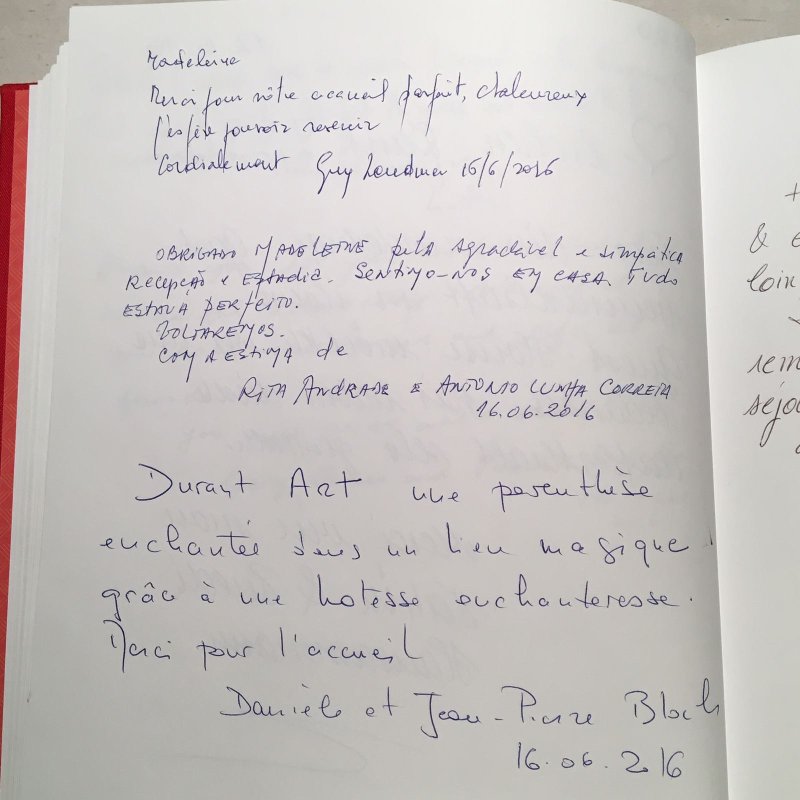 Madeleine
Merci pour vôtre accueil parfait, chaleureux
J'espère pouvoir revenir
Cordialement Guy 16/6/2016
OBRIGADO MADELEINE pela agradável e simpática
Recepção e ESTADIA. SENTIMO-NOS EM CASA. TUDO
ESTAVA PERFEITO.
VOLTAREMOS.
COM A ESTIMA de
RITA ANDRADE E ANTONIO CUNHA CORREIA
16.06.2016
Durant Art une parenthèse
enchantée dans un lieu magique
grâce à une hotesse enchanteresse.
Merci pour l'accueil
Danièle et Jean-Pierre Bloch
16.06.2016
+
&
loin
rem
séjo